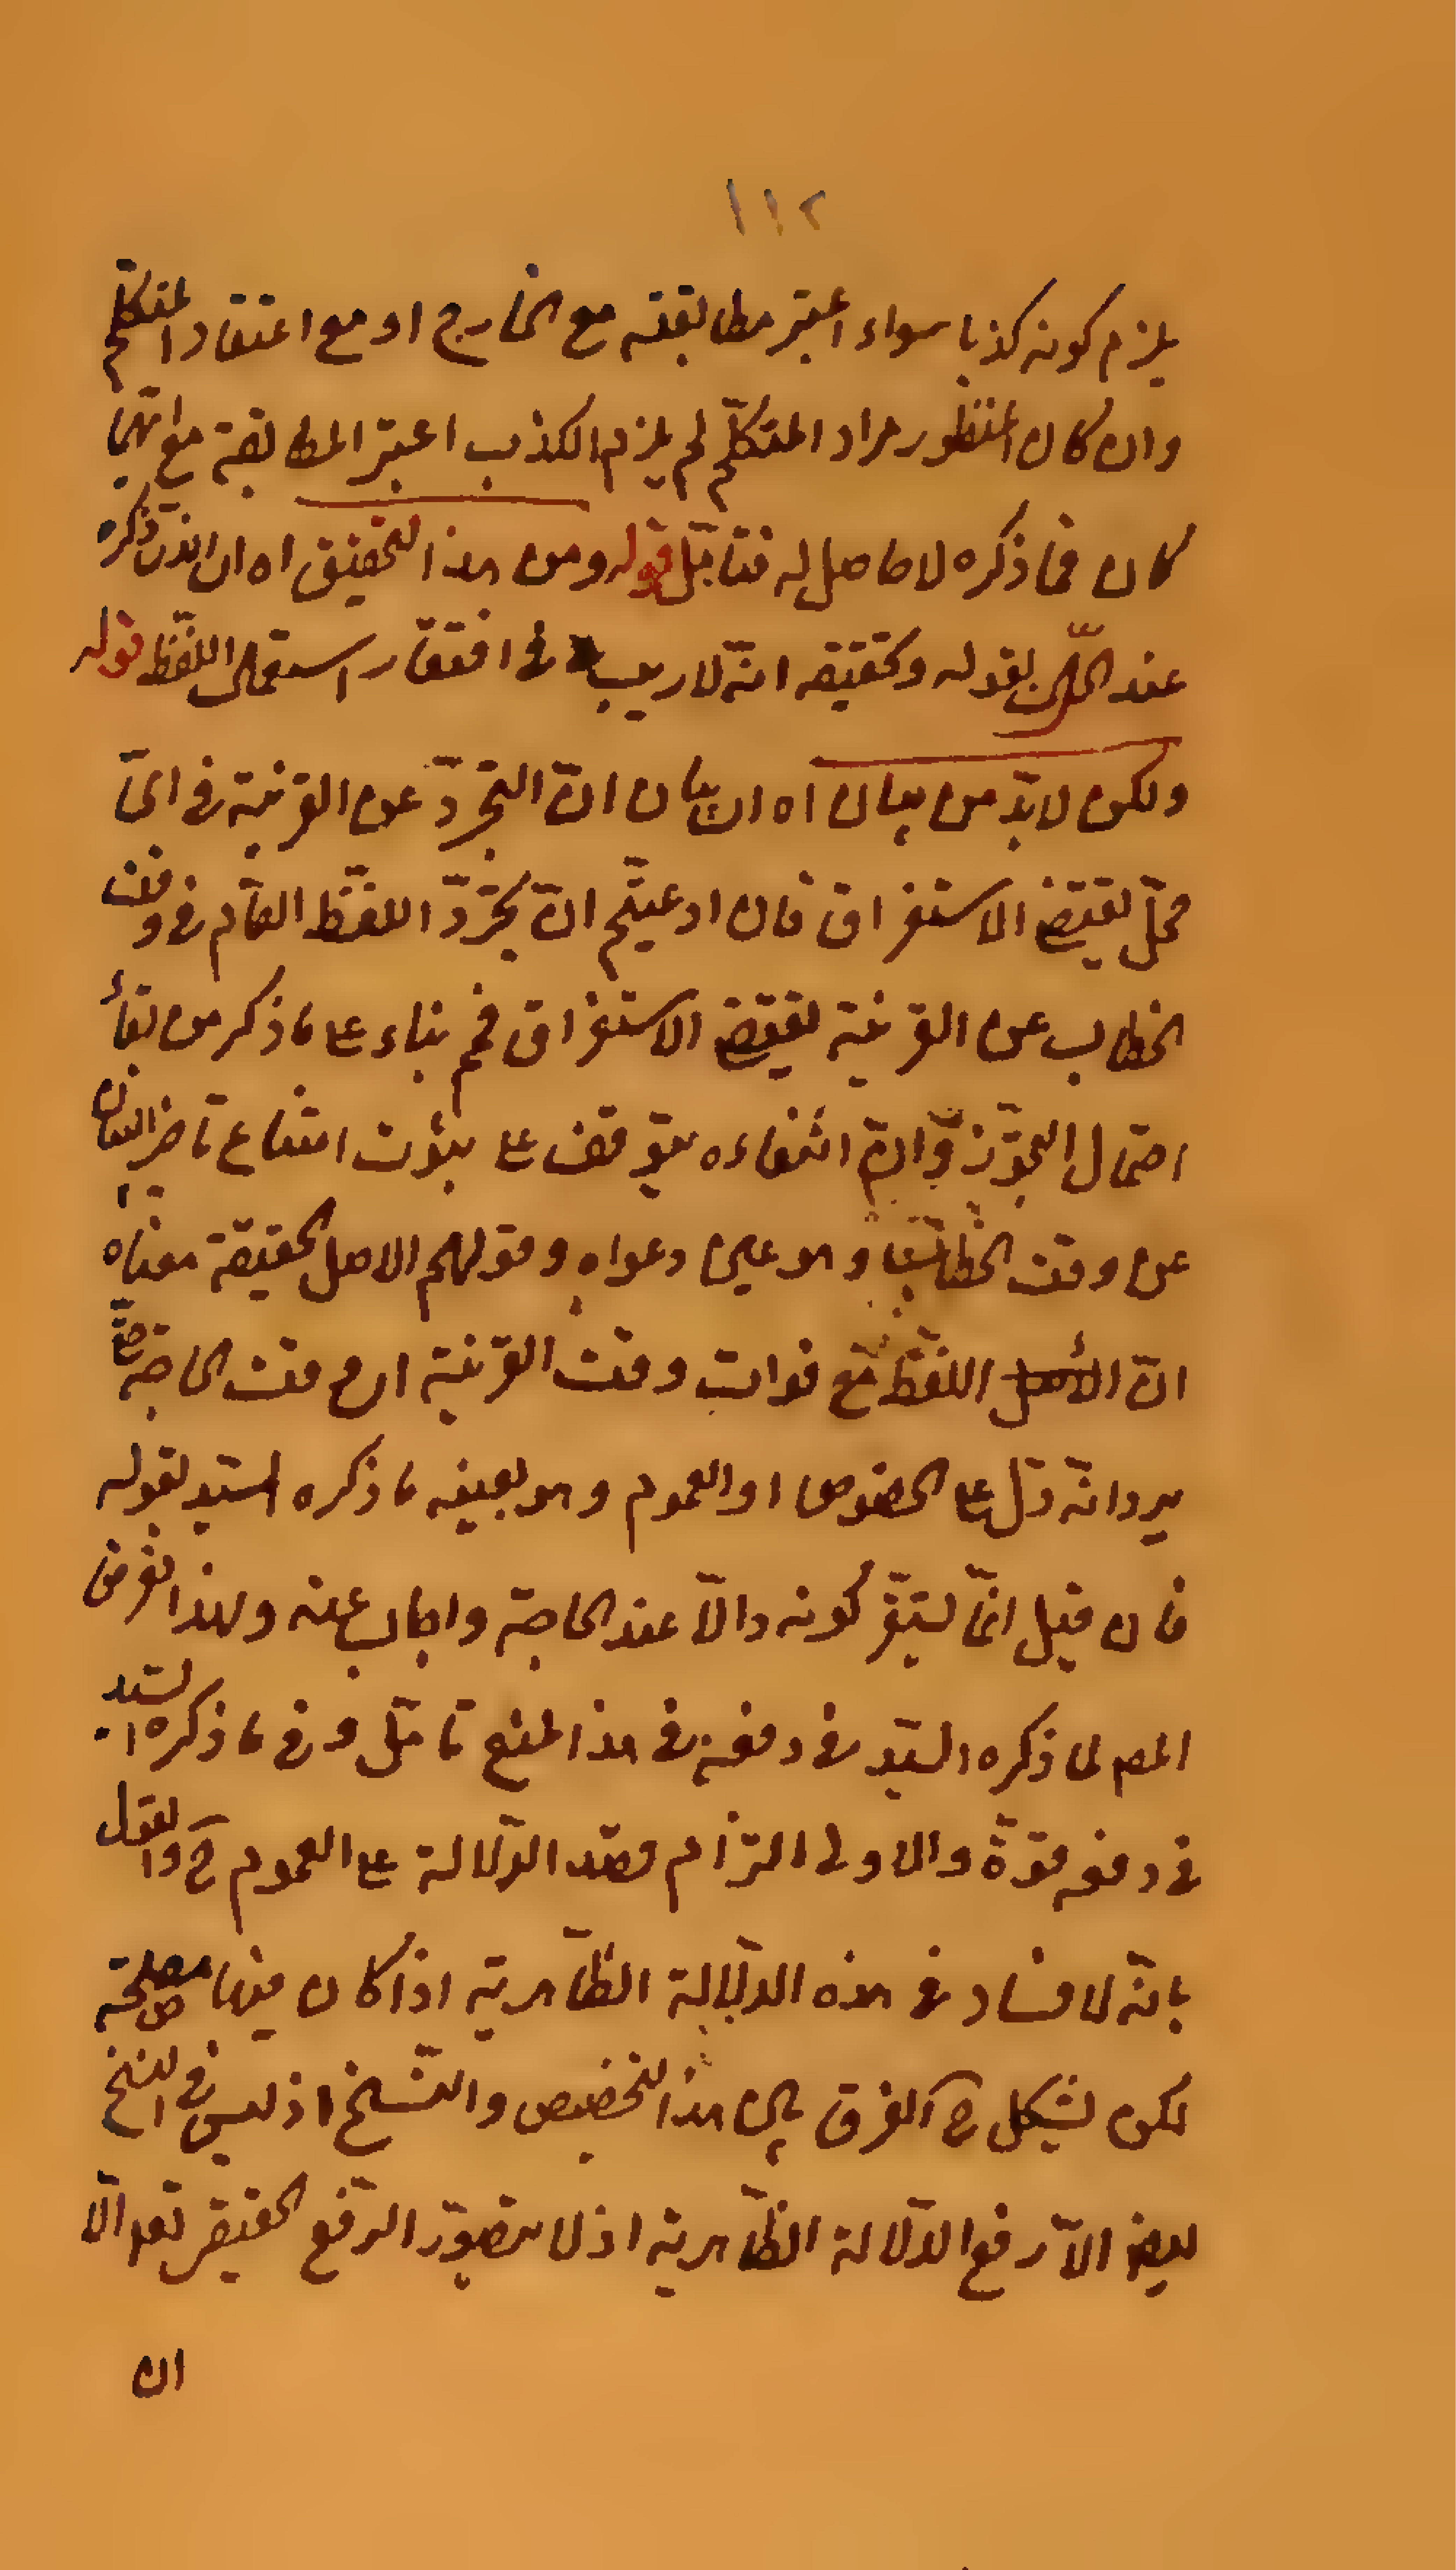 ١١٢
يلزم كونه كذبا سواء اعتبر مطابقته مع الخارج او مع اعتقاد المتكلم
وان كان المنظور مراد المتكلّم لم يلزم الكذب اعتبر المطابقة مع ايّهما
كان فما ذكره لا حاصل له فتأمّل قوله ومن هذا التحقيق اه اى الذى ذكره
عند الحلّ بقوله وتحقيقه انّه لا ريب فى افتقار استعمال اللفظ قوله
ولكن لابدّ من بيان اه اى بيان انّ التجرّد عن القرينة فى اىّ
محلّ يقتضى الاستغراق فان ادعيتم انّ تجرّد اللفظ العامّ فى وقت
الخطاب عن القرينة يقتضى الاستغراق فهم بناء على ما ذكر من بقاء
احتمال التجوّز وانّ انتفاءه يتوقف على ثبوت امتناع تاخير البيان
عن وقت الخطاب وهو عين دعواه وقولهم الاصل الحقيقة معناه
انّ اللفظ مع فوات وقت القرينة اى وقت الحاجة
يرد انّه دلّ على الخصوص او العموم وهو بعينه ما ذكره السيّد بقوله
فان قيل انّما يستقرّ كونه دالّا عند الحاجة واجاب عنه ولهذا تعرض
المص لما ذكره السيّد فى دفعه فى هذا المنع تأمّل وفى ما ذكره السيّد
فى دفعه قوّة والاولى التزام قصد الدّلالة على العموم ح والقول
بانّه لا فساد فى هذه الدلالة الظّاهرية اذا كان فيها مصلحة
لكن يشكل ح الفرق بين هذا التخصيص والنّسخ اذ ليس فى النسخ
ايضا الّا رفع الدّلالة الظّاهرية اذ لا يتصوّر الرّفع الحقيقى بعد الّا
ان